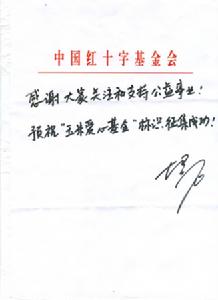 中国红十字基金会
感谢大家关注和支持公益事业！
预祝“玉米爱心基金”标识征集成功！